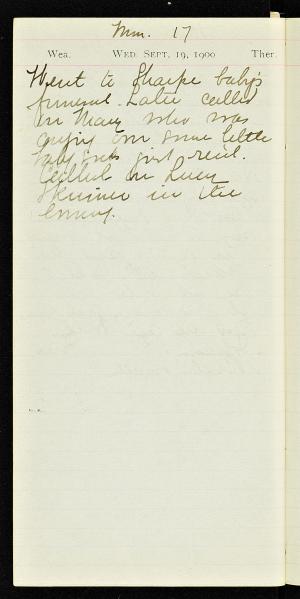 Mon. 17
Wea. WED. SEPT. 19, 1900 Ther.
Went to Sharpe baby's
funeral. Later called
on Mary who was
crying over some little
baby socks just rec'd.
Called on Lucy
Skinner in the
evening.